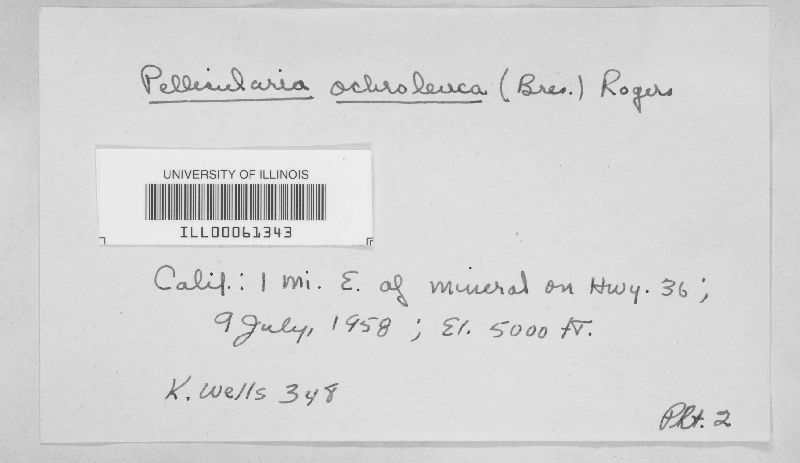 Pellicularia ochroleuca (Bres.) Rogers
UNIVERSITY OF ILLINOIS
ILL00061343
Calif.: 1 mi. E. of mineral on Hwy. 36;
9 July, 1958; El. 5000 ft.
K. Wells 348
Pkt. 2